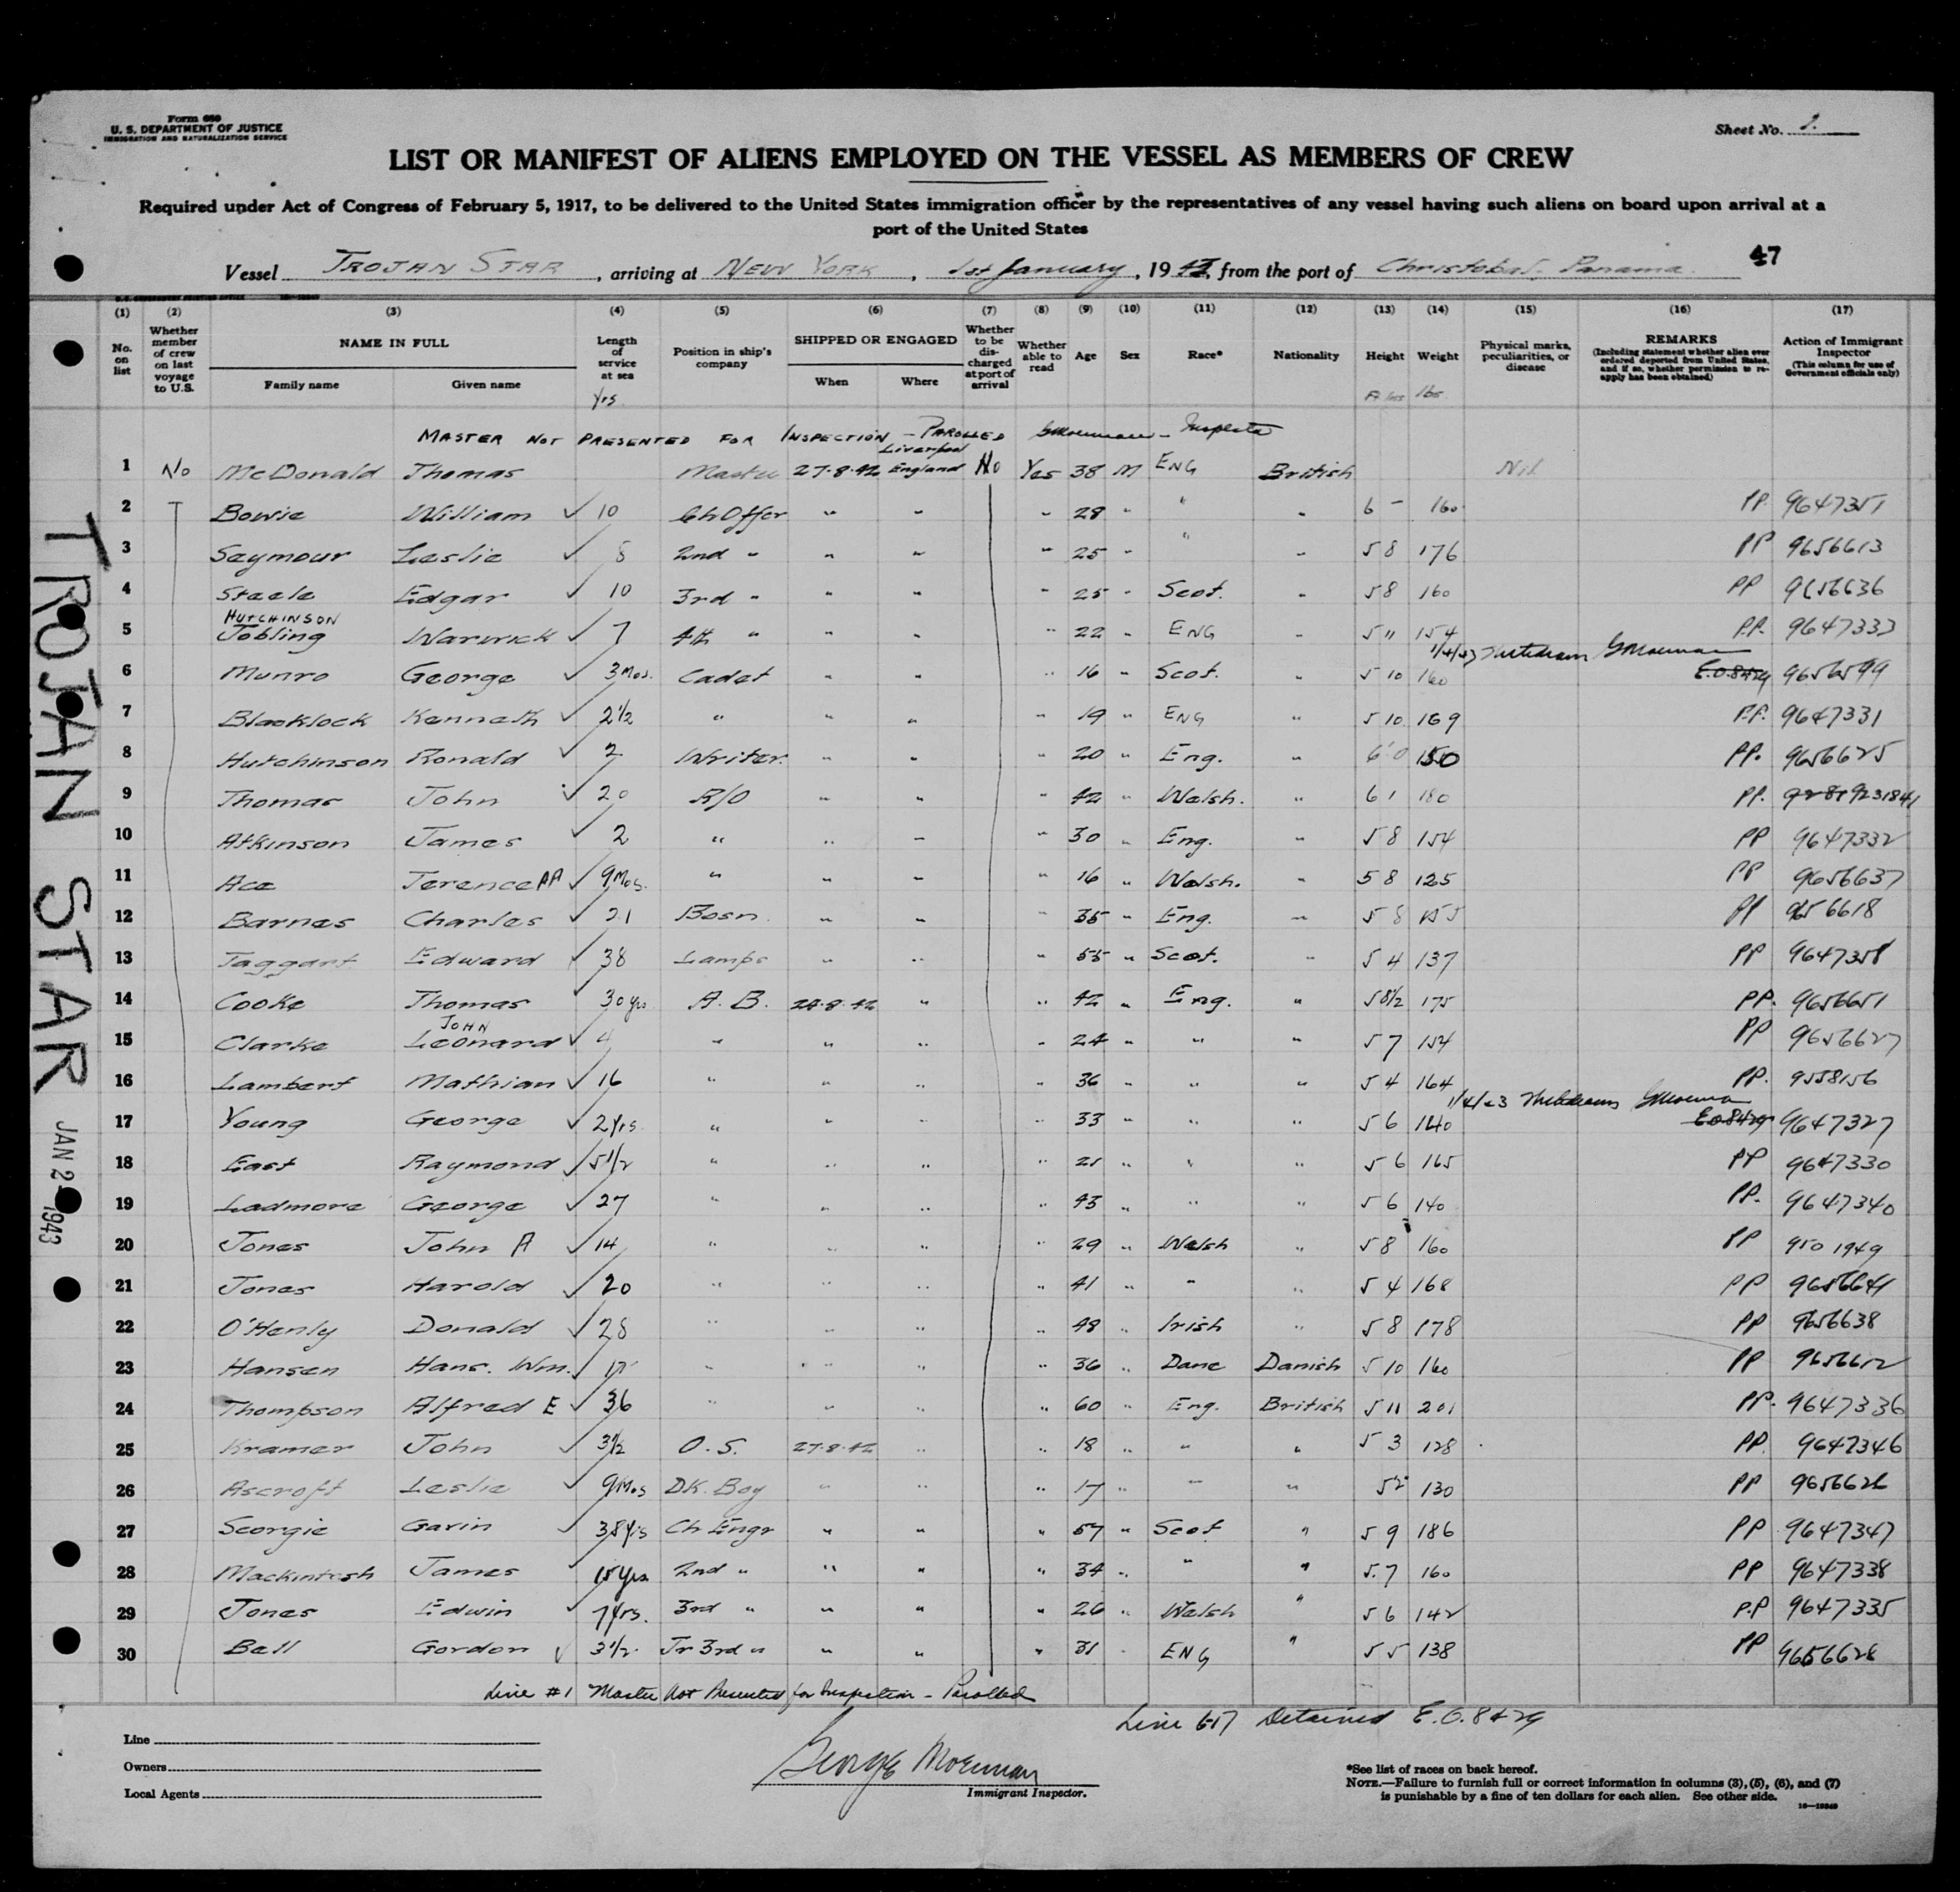 Form 680
U. S. DEPARTMENT OF JUSTICE
IMMIGRATION AND NATURALIZATION SERVICE
Sheet No. 1.
LIST OR MANIFEST OF ALIENS EMPLOYED ON THE VESSEL AS MEMBERS OF CREW
Required under Act of Congress of February 5, 1917, to be delivered to the United States immigration officer by the representatives of any vessel having such aliens on board upon arrival at a
port of the United States
47
Vessel TROJAN STAR, arriving at NEW YORK, 1st January, 1943, from the port of Christobal. Panama.
(1) (2) (3) (4) (5) (6) (7) (8) (9) (10) (11) (12) (13) (14) (15) (16) (17)
No. on list
Whether member of crew on last voyage to U.S.
NAME IN FULL
Family name Given name
Length of service at sea
Yrs
Position in ship's company
SHIPPED OR ENGAGED
When Where
Whether to be discharged at port of arrival
Whether able to read
Age
Sex
Race*
Nationality
Height
Weight
lbs
Physical marks, peculiarities, or disease
REMARKS
(Including statement whether alien ever ordered deported from United States, and if so, whether permission to reapply has been obtained)
Action of Immigrant Inspector
(This column for use of Government officials only)
MASTER NOT PRESENTED FOR INSPECTION - PAROLLED GMoerman - Inspector
Liverpool
1 No McDonald Thomas Master 27-8-42 England No Yes 38 M ENG British Nil
2 Bowie William ✓ 10 Ch Offcr " " " 28 " " " 6 - 160 PP. 9647351
3 Seymour Leslie ✓ 8 2nd " " " " 25 " " " 5 8 176 PP 9656613
4 Steele Edgar ✓ 10 3rd " " " " 25 " Scot. " 5 8 160 PP 9656636
HUTCHINSON
5 Jobling Warwick ✓ 7 4th " " " " 22 " ENG " 5 11 154 P.P. 9647333
1/4/43 Withdrawn GMoerman
6 Munro George ✓ 3 Mos. Cadet " " " 16 " Scot. 5 10 160 E.O.8429 9656599
7 Blacklock Kenneth ✓ 2½ " " " " 19 " ENG " 5 10 169 P.P. 9647331
8 Hutchinson Ronald ✓ 2 Writer. " " " 20 " Eng. " 6'0 150 PP. 9656625
9 Thomas John ✓ 20 R/O " " " 42 " Welsh. " 6 1 180 PP. 9231841
10 Atkinson James ✓ 2 " " " " 30 " Eng. " 5 8 154 PP 9647332
11 Ace Terence AA ✓ 9 Mos. " " " " 16 " Welsh. " 5 8 125 PP 9656637
12 Barnes Charles ✓ 21 Bosn. " " " 35 " Eng. " 5 8 155 PP 9656618
13 Taggart Edward ✓ 38 Lamps " " " 55 " Scot. " 5 4 137 PP 9647358
14 Cooke Thomas ✓ 30 yrs A. B. 28-8-42 " " 42 " Eng. " 5 8½ 175 PP. 9656651
JOHN
15 Clarke Leonard ✓ 4 " " " " 24 " " " 5 7 154 PP 9656627
16 Lambert Mathian ✓ 16 " " " " 36 " " " 5 4 164 PP. 9558156
1/4/43 Withdrawn GMoerman
17 Young George ✓ 2 Yrs. " " " " 33 " " " 5 6 140 E.O.8429 9647327
18 East Raymond ✓ 5½ " " " " 21 " " " 5 6 165 PP 9647330
19 Ladmore George ✓ 27 " " " " 43 " " " 5 6 140 PP. 9647340
20 Jones John A ✓ 14 " " " " 29 " Welsh " 5 8 160 PP 9501949
21 Jones Harold ✓ 20 " " " " 41 " " " 5 4 168 PP 9656641
22 O'Henly Donald ✓ 28 " " " " 48 " Irish " 5 8 178 PP 9656638
23 Hansen Hans. Wm. ✓ 17 " " " " 36 " Dane Danish 5 10 160 PP 9656612
24 Thompson Alfred E ✓ 36 " " " " 60 " Eng. British 5 11 201 PP. 9647336
25 Kramer John ✓ 3½ O. S. 27-8-42 " " 18 " " " 5 3 128 PP. 9647346
26 Ascroft Leslie ✓ 9 Mos DK. Boy " " " 17 " " " 5 2 130 PP 9656626
27 Scorgie Gavin ✓ 38 Yrs Ch Engr " " " 57 " Scot " 5 9 186 PP 9647347
28 Mackintosh James ✓ 15 Yrs 2nd " " " " 34 " " " 5.7 160 PP 9647338
29 Jones Edwin ✓ 7 Yrs. 3rd " " " " 26 " Welsh " 5 6 142 P.P 9647335
30 Bell Gordon ✓ 3½. Jr 3rd " " " " 31 ENG " 5 5 138 PP 9656628
Line #1 Master Not Presented for Inspection - Parolled
Line 6-17 Detained E.O. 8429
Line
Owners
Local Agents
George Moerman
Immigrant Inspector.
*See list of races on back hereof.
NOTE.—Failure to furnish full or correct information in columns (3), (5), (6), and (7)
is punishable by a fine of ten dollars for each alien. See other side.
TROJAN STAR
JAN 2 1943